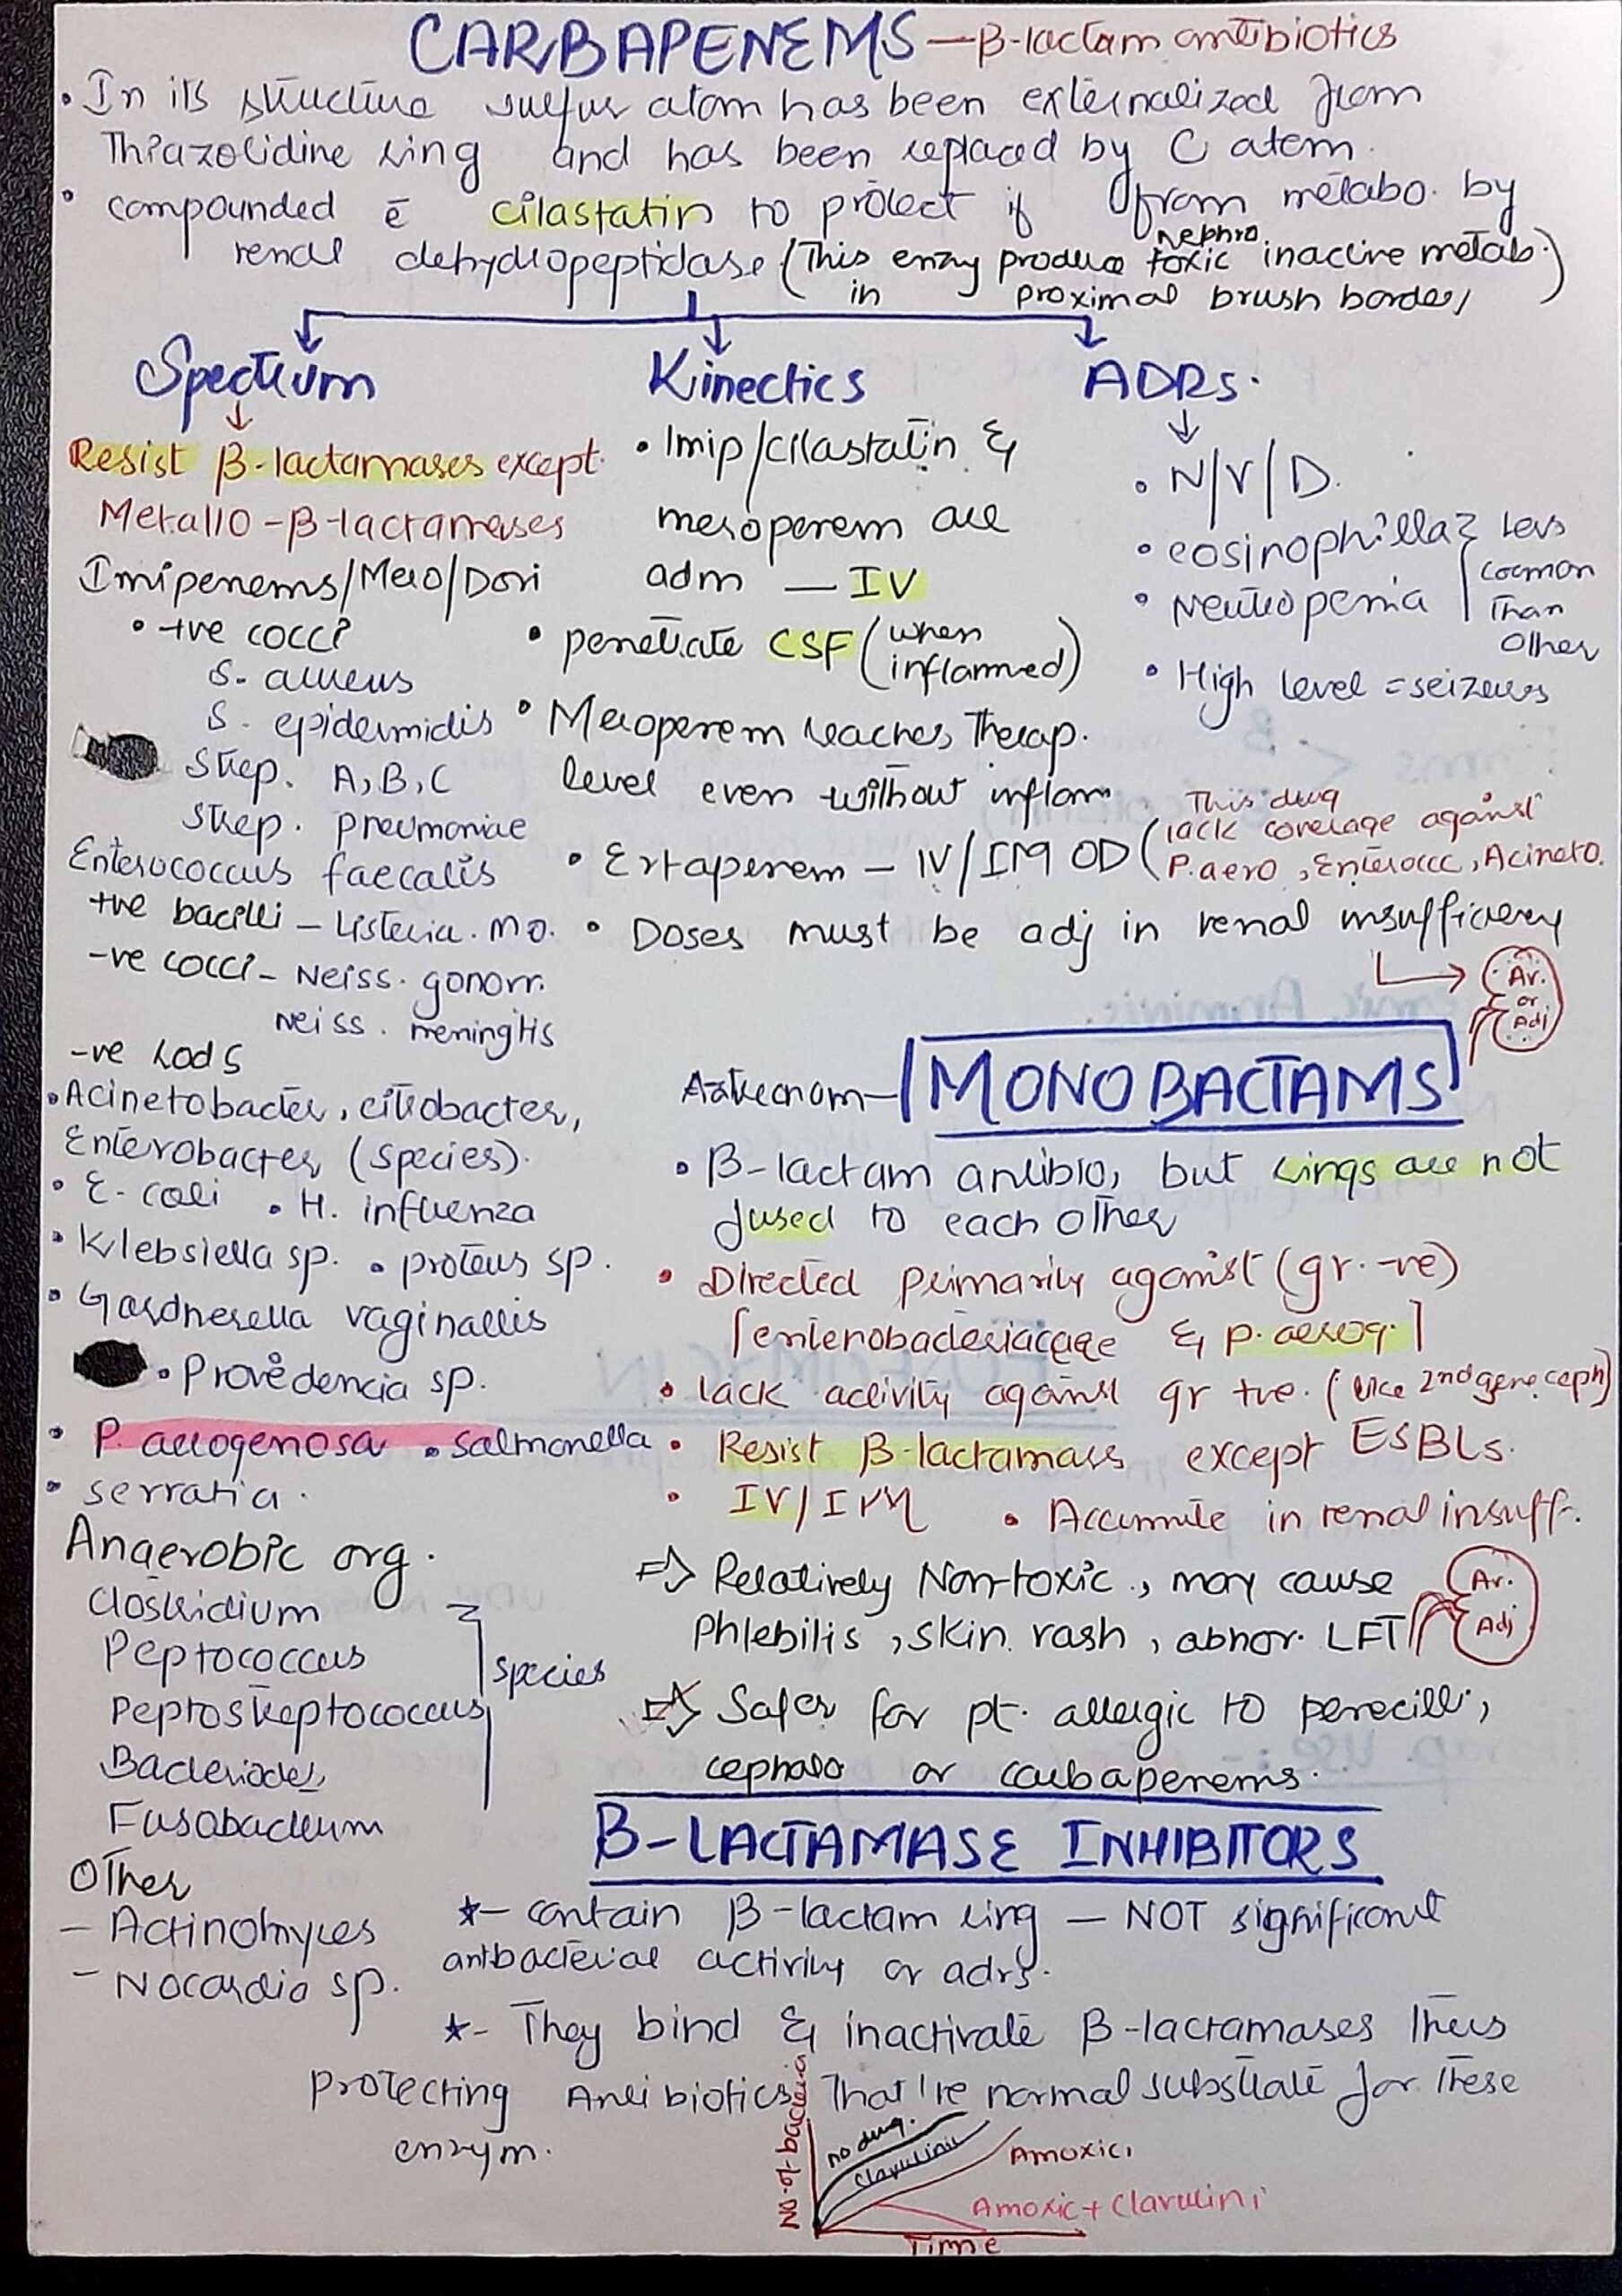 CARBAPENEMS — β-lactam antibiotics
• In its structure sulfur atom has been externalized from
Thiazolidine ring and has been replaced by C atom.
• compounded c̄ cilastatin to protect it from metabo. by
renal dehydropeptidase (This enzy produce nephro toxic inactive metab.
in proximal brush border)
Spectrum
Resist β-lactamases except
Metallo-β-lactamases
Imipenems/Mero/Dori
• +ve cocci
S. aureus
S. epidermidis
Strep. A,B,C
Strep. pneumoniae
Enterococcus faecalis
+ve bacilli – Listeria. mo.
-ve cocci – Neiss. gonorr.
Neiss. meningitis
-ve rods
• Acinetobacter, citrobacter,
Enterobacter (species).
• E. coli • H. influenza
• Klebsiella sp. • proteus sp.
• Gardnerella vaginallis
• Providencia sp.
• P. aerogenosa • Salmonella
• serratia.
Anaerobic org.
Clostridium
Peptococcus
Peptostreptococcus
Bacteriodes
Fusobacterium
species
Other
– Actinomyces
– Nocardia sp.
Kinectics
• Imip/cilastatin &
meroperem are
adm — IV
• penetrate CSF (when inflammed)
• Meroperem reaches Therap.
level even without inflam
• Ertaperem – IV/IM OD (This drug
lack coverage against
P.aero, Enterococ, Acineto.
• Doses must be adj in renal insufficiency
Av.
or
Adj
ADRs.
• N/V/D.
• eosinophilla
• Neutropenia
Less
common
Than
Other
• High level = seizeurs
Aztreonam – MONOBACTAMS
• β-lactam antibio, but rings are not
fused to each other
• Directed primarily agonist (gr.-ve)
[enterobacteriaceae & p. aerog.]
• lack activity against gr +ve. (like 2nd gene. ceph)
• Resist β-lactamases except ESBLs.
• IV/IM • Accumlte in renal insuff.
⇒ Relatively Non-toxic, may cause
Phlebitis, skin rash, abnor. LFT
Av.
Adj
⇒ Safer for pt. allergic to penecill.,
cephalo or carbapenems.
β-LACTAMASE INHIBITORS
*- contain β-lactam ring — NOT significant
antibacterial activity or adrs.
*- They bind & inactivate β-lactamases thus
protecting Antibiotics that're normal substrate for these
enzym.
No. of bacteria
no drug.
Clavulinic
Amoxici
Amoxic + Clavulini
Time